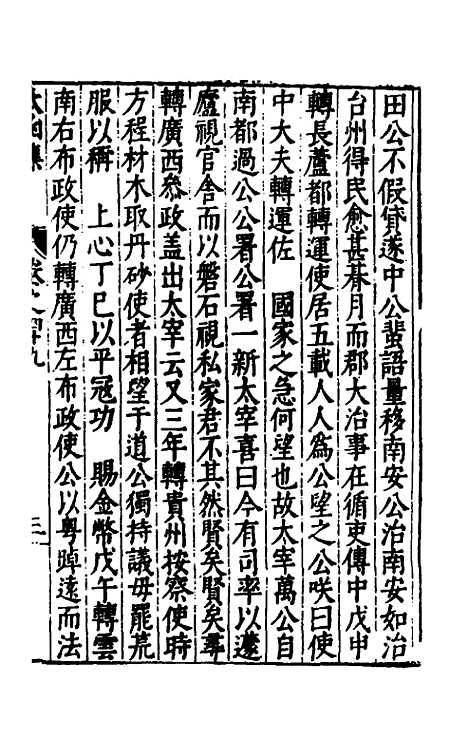 田公不假貸遂中公蜚語量移南安公治南安如治
台州得民愈甚朞月而郡大治事在循吏傳中戊申
轉長蘆都轉運使居五載人人為公望之公咲曰使
中大夫轉運佐　國家之急何望也故太宰萬公自
南都過公公署公署一新太宰喜曰今有司率以遽
廬視官舍而以磐石視私家君不其然賢矣賢矣尋
轉廣西叅政盖出太宰云又三年轉貴州按察使時
方程材木取丹砂使者相望于道公獨持議毋罷荒
服以稱　上心丁巳以平冦功　賜金幣戊午轉雲
南右布政使仍轉廣西左布政使公以粤踔遠而法
太函集　卷之四十九　三